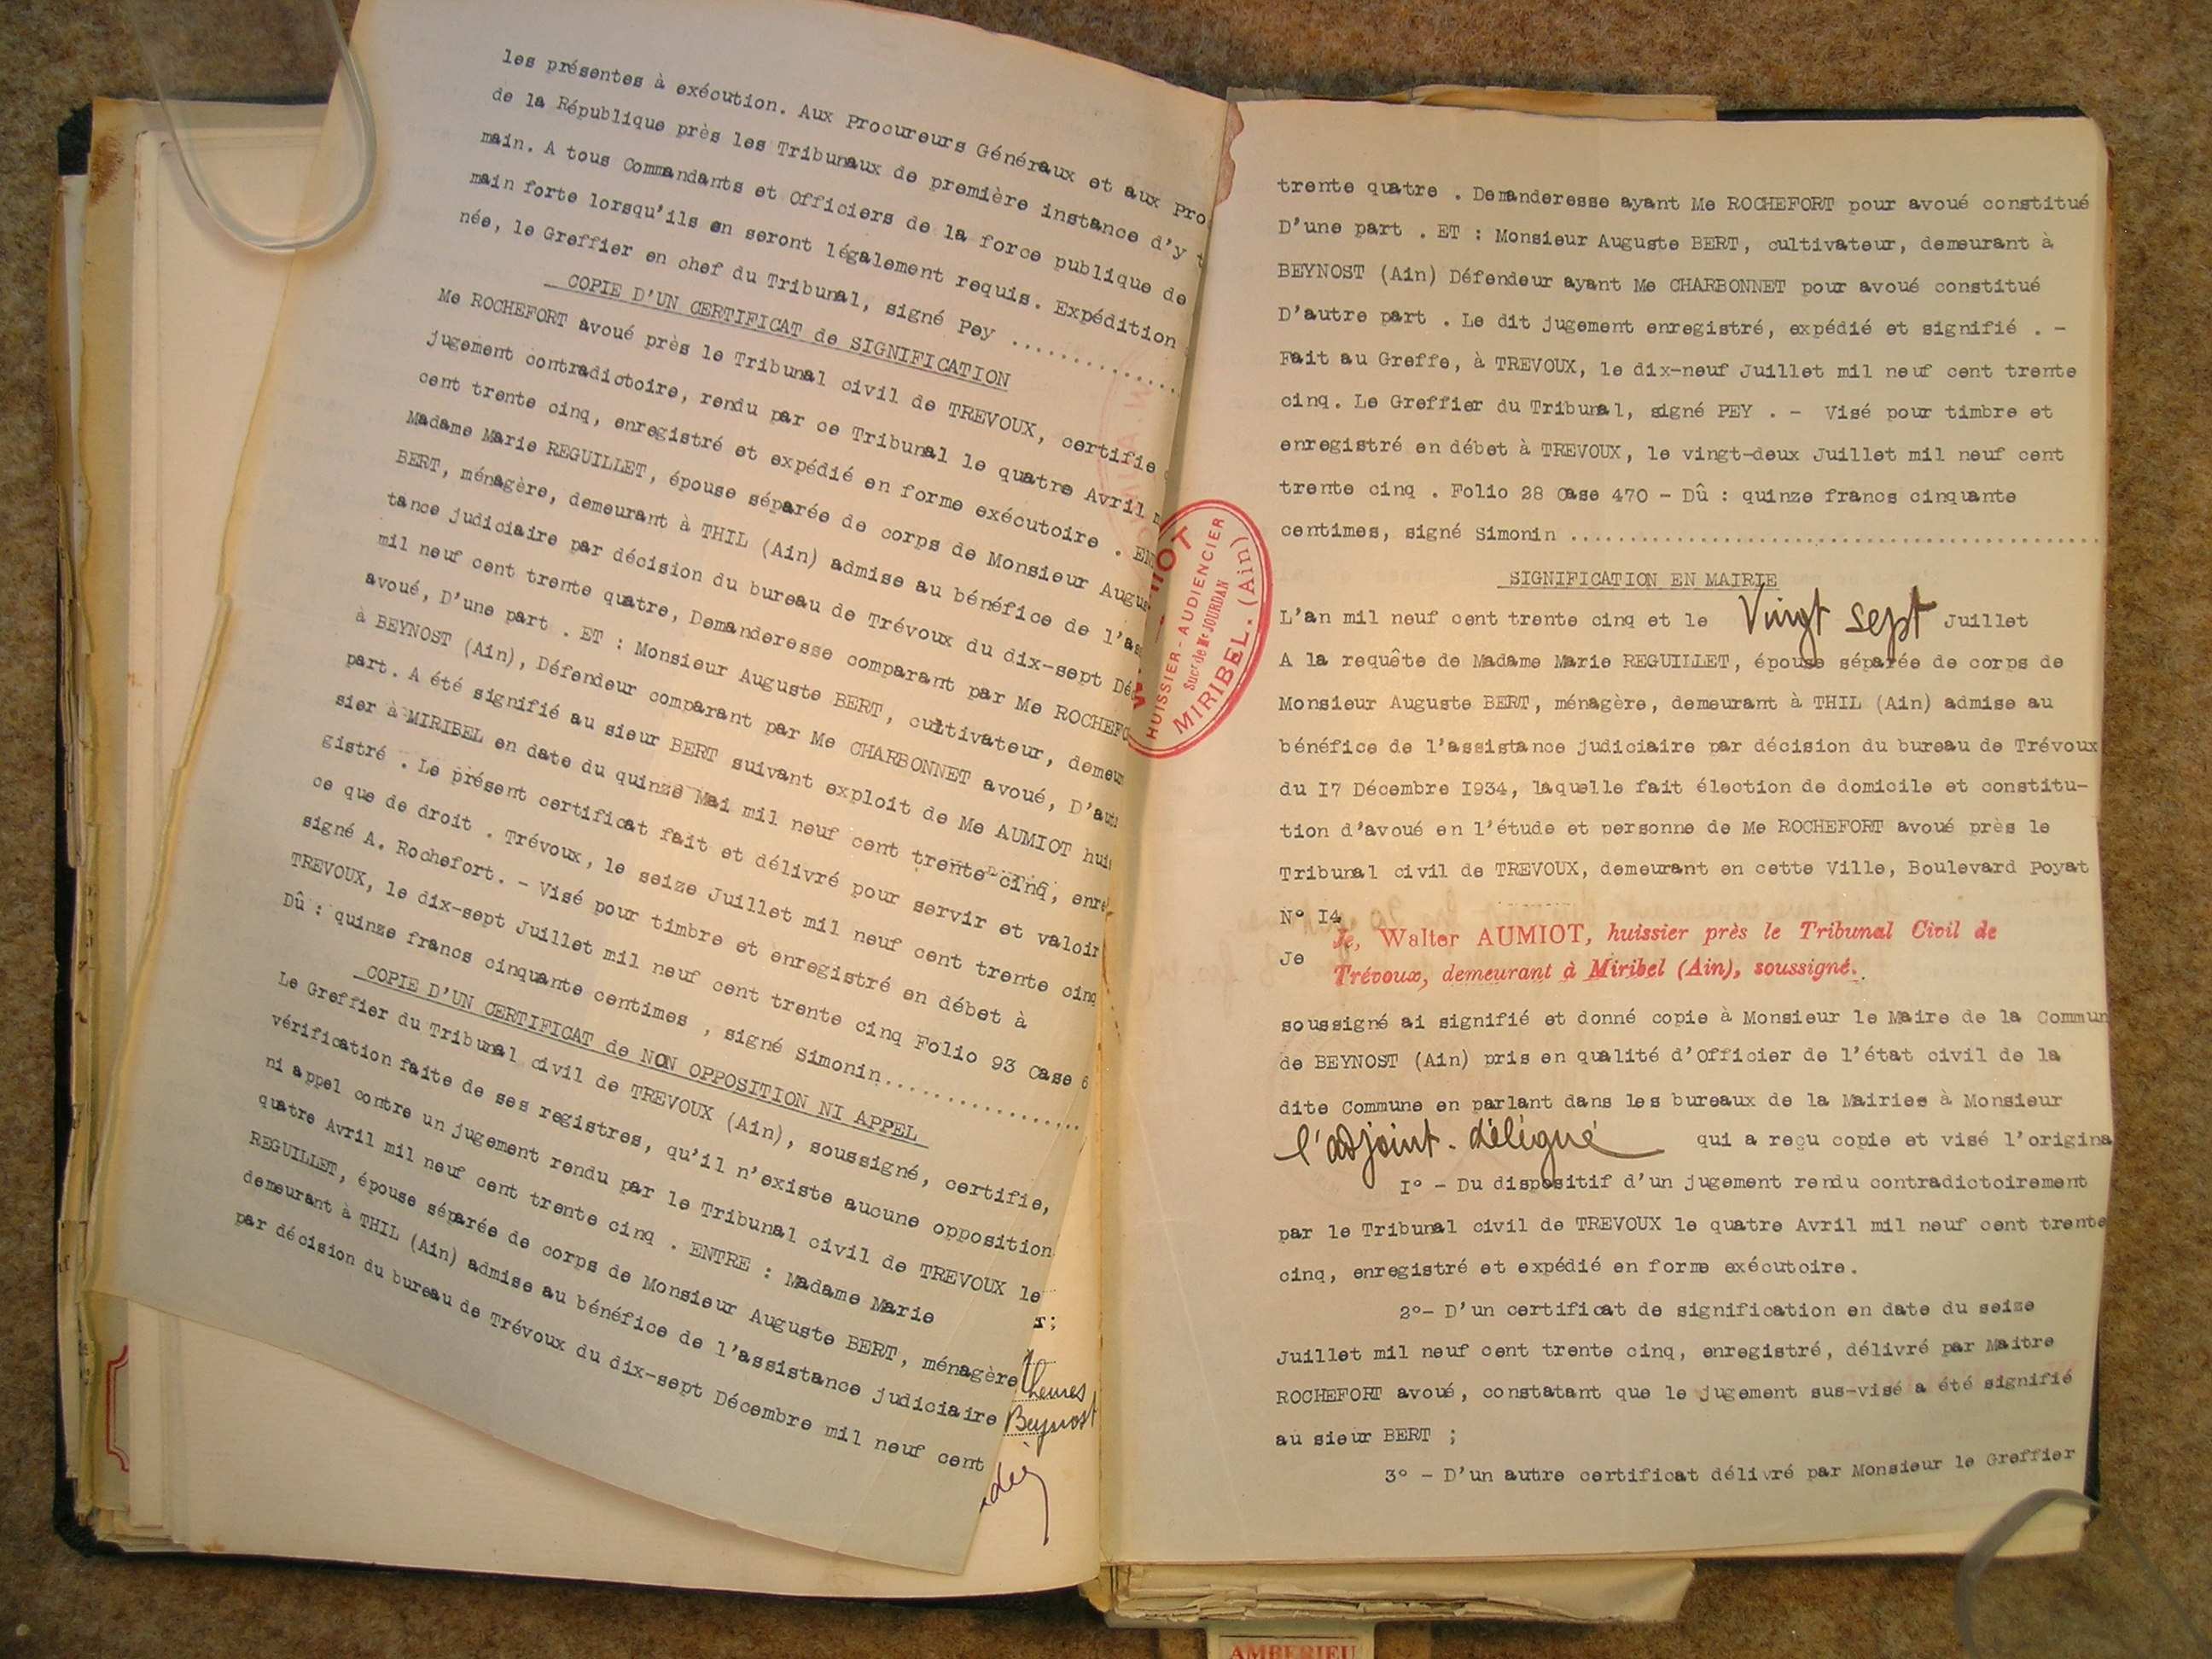 les présentes à exécution. Aux Procureurs Généraux et aux Pro
de la République près les Tribunaux de première instance d'y t
main. A tous Commandants et Officiers de la force publique de
main forte lorsqu'ils en seront légalement requis. Expédition
née, le Greffier en chef du Tribunal, signé Pey ................
COPIE D'UN CERTIFICAT de SIGNIFICATION
Me ROCHEFORT avoué près le Tribunal civil de TREVOUX, certifie
jugement contradictoire, rendu par ce Tribunal le quatre Avril m
cent trente cinq, enregistré et expédié en forme exécutoire . EN
Madame Marie REGUILLET, épouse séparée de corps de Monsieur Augus
BERT, ménagère, demeurant à THIL (Ain) admise au bénéfice de l'as
tance judiciaire par décision du bureau de Trévoux du dix-sept Dé
mil neuf cent trente quatre, Demanderesse comparant par Me ROCHEFO
avoué, D'une part . ET : Monsieur Auguste BERT, cultivateur, demeur
à BEYNOST (Ain), Défendeur comparant par Me CHARBONNET avoué, D'aut
part. A été signifié au sieur BERT suivant exploit de Me AUMIOT huis
sier à MIRIBEL en date du quinze Mai mil neuf cent trente cinq, enre
gistré . Le présent certificat fait et délivré pour servir et valoir
ce que de droit . Trévoux, le seize Juillet mil neuf cent trente cinq
signé A. Rochefort. - Visé pour timbre et enregistré en débet à
TREVOUX, le dix-sept Juillet mil neuf cent trente cinq Folio 93 Case 6
Dû : quinze francs cinquante centimes , signé Simonin................
COPIE D'UN CERTIFICAT de NON OPPOSITION NI APPEL
Le Greffier du Tribunal civil de TREVOUX (Ain), soussigné, certifie,
vérification faite de ses registres, qu'il n'existe aucune opposition
ni appel contre un jugement rendu par le Tribunal civil de TREVOUX le
quatre Avril mil neuf cent trente cinq . ENTRE : Madame Marie
REGUILLET, épouse séparée de corps de Monsieur Auguste BERT, ménagère
demeurant à THIL (Ain) admise au bénéfice de l'assistance judiciaire
par décision du bureau de Trévoux du dix-sept Décembre mil neuf cent
r;
heures
Beynost
HUISSIER-AUDIENCIER
Sucr de Me JOURDAN
MIRIBEL. (Ain)
trente quatre . Demanderesse ayant Me ROCHEFORT pour avoué constitué
D'une part . ET : Monsieur Auguste BERT, cultivateur, demeurant à
BEYNOST (Ain) Défendeur ayant Me CHARBONNET pour avoué constitué
D'autre part . Le dit jugement enregistré, expédié et signifié . -
Fait au Greffe, à TREVOUX, le dix-neuf Juillet mil neuf cent trente
cinq. Le Greffier du Tribunal, signé PEY . - Visé pour timbre et
enregistré en débet à TREVOUX, le vingt-deux Juillet mil neuf cent
trente cinq . Folio 28 Case 470 - Dû : quinze francs cinquante
centimes, signé Simonin ................................
SIGNIFICATION EN MAIRIE
L'an mil neuf cent trente cinq et le Vingt sept Juillet
A la requête de Madame Marie REGUILLET, épouse séparée de corps de
Monsieur Auguste BERT, ménagère, demeurant à THIL (Ain) admise au
bénéfice de l'assistance judiciaire par décision du bureau de Trévoux
du I7 Décembre I934, laquelle fait élection de domicile et constitu-
tion d'avoué en l'étude et personne de Me ROCHEFORT avoué près le
Tribunal civil de TREVOUX, demeurant en cette Ville, Boulevard Poyat
N° I4
Je, Walter AUMIOT, huissier près le Tribunal Civil de
Je
Trévoux, demeurant à Miribel (Ain), soussigné.
soussigné ai signifié et donné copie à Monsieur le Maire de la Commun
de BEYNOST (Ain) pris en qualité d'Officier de l'état civil de la
dite Commune en parlant dans les bureaux de la Mairies à Monsieur
l'adjoint-délégué qui a reçu copie et visé l'origina
I° - Du dispositif d'un jugement rendu contradictoirement
par le Tribunal civil de TREVOUX le quatre Avril mil neuf cent trente
cinq, enregistré et expédié en forme exécutoire.
2°- D'un certificat de signification en date du seize
Juillet mil neuf cent trente cinq, enregistré, délivré par Maitre
ROCHEFORT avoué, constatant que le jugement sus-visé a été signifié
au sieur BERT ;
3° - D'un autre certificat délivré par Monsieur le Greffier
AMBERIEU